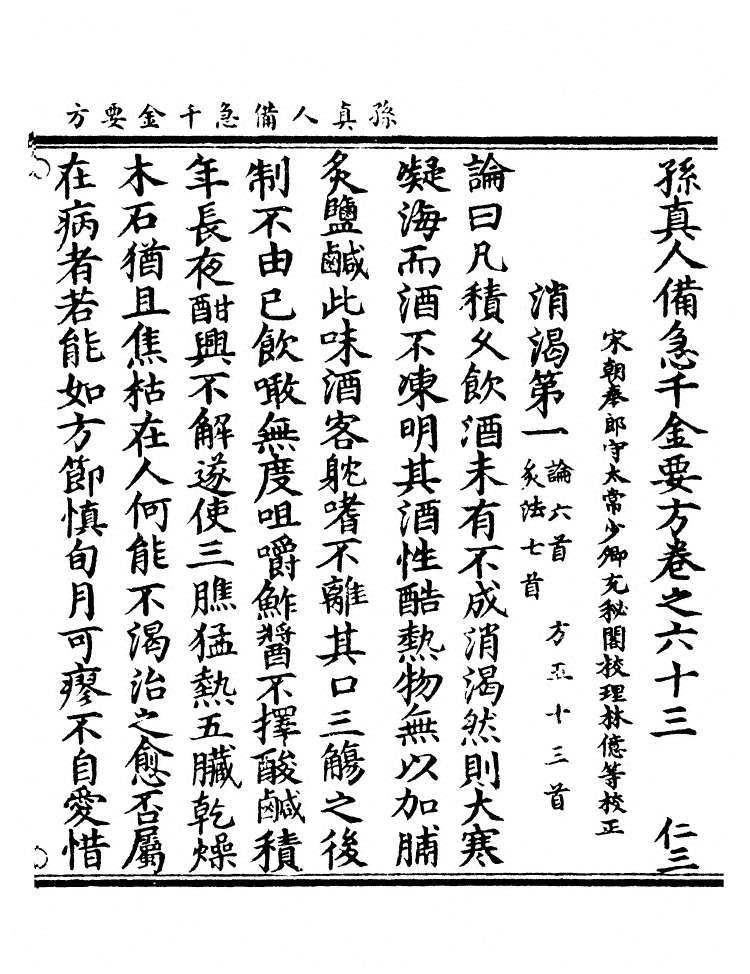 孫真人備急千金要方
孫真人備急千金要方卷之六十三　仁三
宋朝奉郎守太常少卿充秘閣校理林億等校正
消渴第一　論六首　方五十三首
炙法七首
論曰凡積久飲酒未有不成消渴然則大寒
凝海而酒不凍明其酒性酷熱物無以加脯
炙鹽鹹此味酒客躭嗜不離其口三觴之後
制不由己飲噉無度咀嚼鮓醬不擇酸鹹積
年長夜酣興不解遂使三膲猛熱五臟乾燥
木石猶且焦枯在人何能不渴治之愈否屬
在病者若能如方節慎旬月可瘳不自愛惜